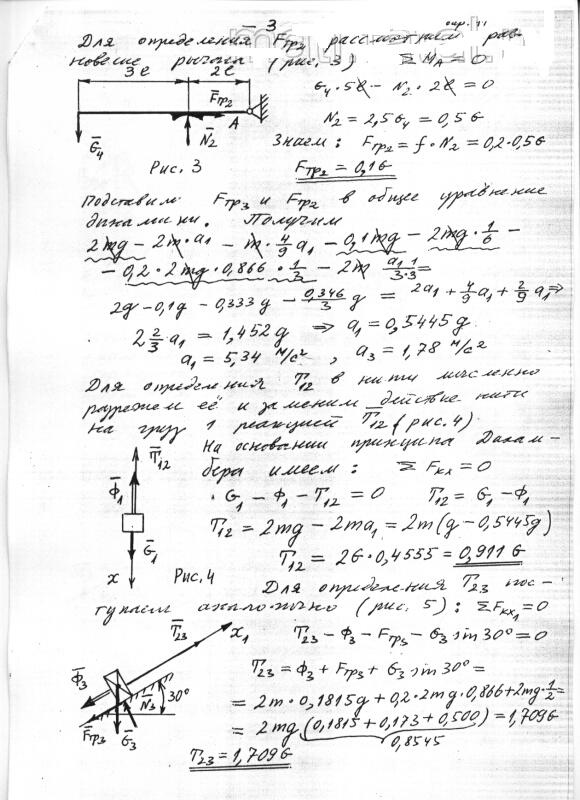 - 3
стр. 11
Для определения Fтр2 рассмотрим рав-
новесие рычага (рис. 3) ΣMA = 0
3l 2l
F̄тр2 A
Ḡ4 N̄2
Рис. 3
G4·5l - N2·2l = 0
N2 = 2,5G4 = 0,5G
Знаем: Fтр2 = f·N2 = 0,2·0,5G
Fтр2 = 0,1G
Подставим Fтр3 и Fтр2 в общее уравнение
динамики. Получим
2mg - 2m·a1 - m·4/9 a1 - 0,1mg - 2mg·1/6 -
- 0,2·2mg·0,866·1/3 - 2m a1·1/3·3 =
2g - 0,1g - 0,333g - 0,346/3 g = 2a1 + 4/9 a1 + 2/9 a1 ⇒
2 2/3 a1 = 1,452g ⇒ a1 = 0,5445g
a1 = 5,34 м/с², a3 = 1,78 м/с²
Для определения T12 в нити мысленно
разрежем её и заменим действие нити
на груз 1 реакцией T̄12 (рис. 4)
На основании принципа Далам-
бера имеем: ΣFкх = 0
G1 - Ф1 - T12 = 0 T12 = G1 - Ф1
T12 = 2mg - 2ma1 = 2m(g - 0,5445g)
T12 = 2G·0,4555 = 0,911G
T̄12
Ф̄1
Ḡ1
x Рис. 4
Для определения T23 пос-
тупаем аналогично (рис. 5): ΣFкх1 = 0
T23 - Ф3 - Fтр3 - G3 sin30° = 0
T23 = Ф3 + Fтр3 + G3 sin30° =
= 2m·0,1815g + 0,2·2mg·0,866 + 2mg·1/2 =
= 2mg(0,1815 + 0,173 + 0,500) = 1,709G
0,8545
T̄23 x1
Ф̄3
N̄3 30°
F̄тр3 Ḡ3
T23 = 1,709G